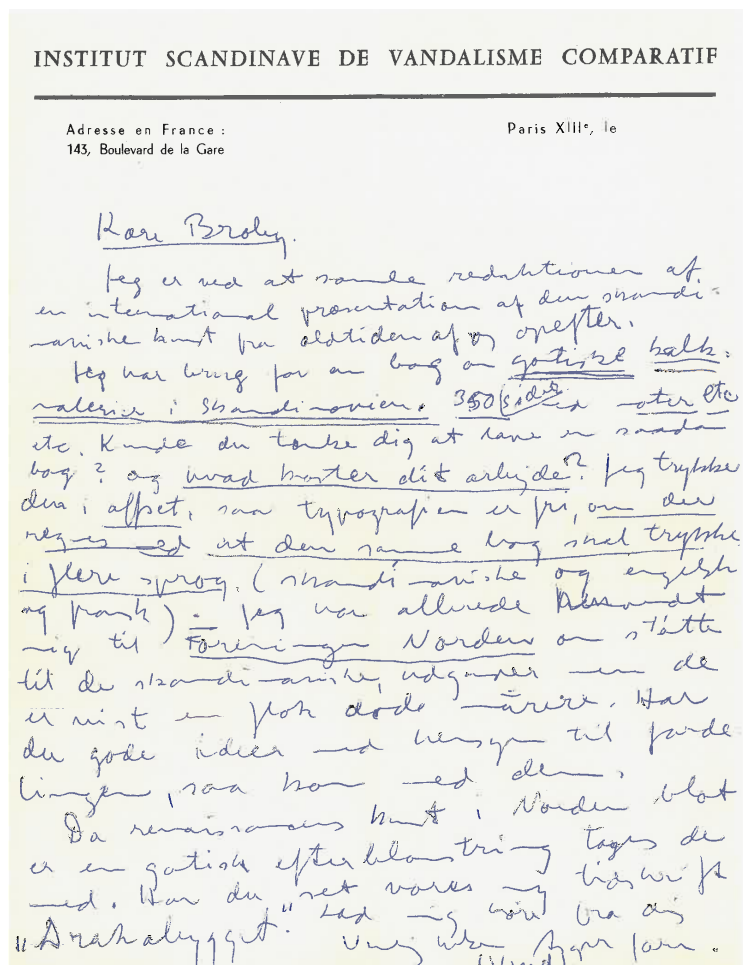 INSTITUT SCANDINAVE DE VANDALISME COMPARATIF
Adresse en France :
143, Boulevard de la Gare
Paris XIIIe, le
Kære Broby.
Jeg er ved at samle redaktionen af
en international præsentation af den skandi-
naviske kunst fra oldtiden af og opefter.
Jeg har brug for en bog om gotiske kalk-
malerier i Skandinavien. 350 sider med noter etc
etc. Kunde du tænke dig at lave en saadan
bog? og hvad koster dit arbejde? Jeg trykker
den i offset, saa typografien er fri, om der
regnes med at den samme bog skal trykkes
i flere sprog. (skandinaviske og engelsk
og fransk). Jeg har allerede henvendt
mig til Foreningen Norden om støtte
til de skandinaviske udgaver men de
er vist en flok døde mærere. Har
du gode ideer med hensyn til forde
lingen, saa kom med dem.
Da renaissancens kunst i Norden blot
er en gotisk efterblomstring tages de
med. Har du set vores ny tidskrift
"Drakabygget." Lad mig høre fra dig
Venlig hilsen Asger Jorn.